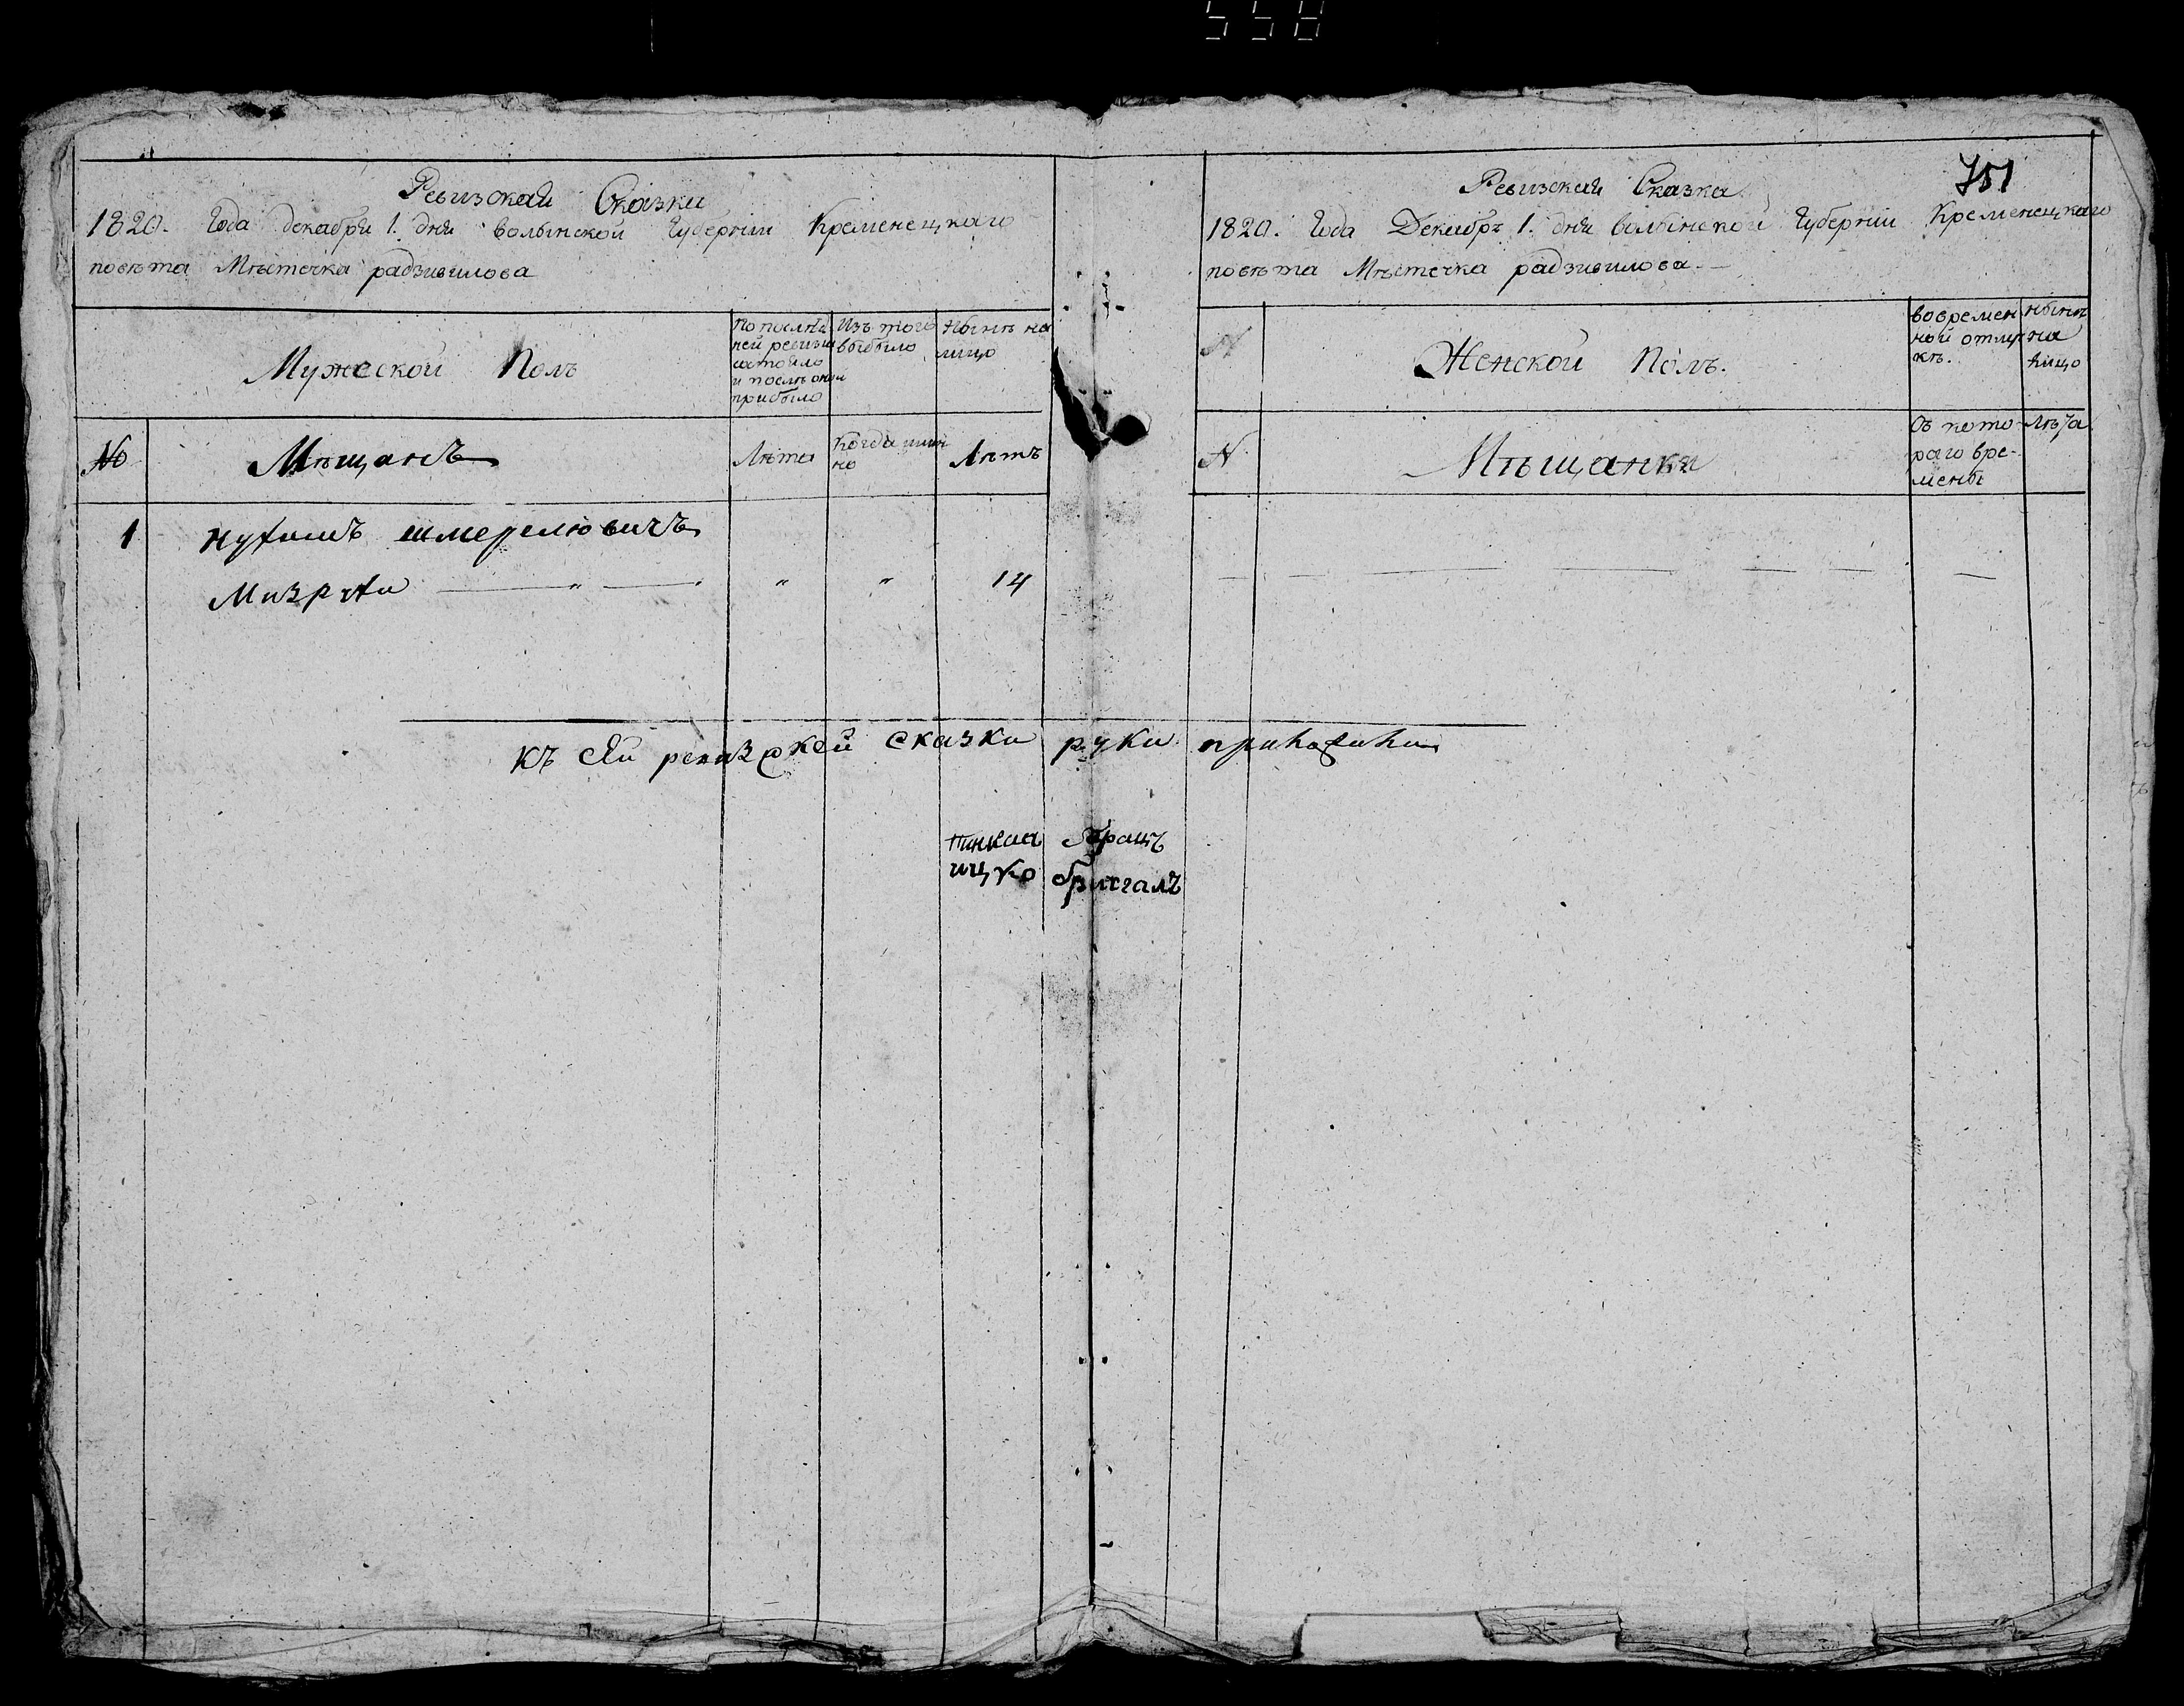 558
Ревизская Сказка
1820. Года декабря 1. дня волынской Губернии Кременецкаго
повѣта Мѣстечка радзивилова
Мужеской Полъ
По послѣд
ней ревизи
состояло
и послѣ оной
прибыло
Изъ того
выбыло
Нынѣ на
лицо
№
Мѣщанъ
Лѣта
Когда имян
но
Лѣтъ
1 шмерлювичъ
" " " 14
751
Ревизская Сказка
1820. Года Декабрь 1. дня волынской Губернии Кременецкаго
повѣта Мѣстечка радзивилова.
N
Женской Полъ.
во времен
ной отлуч
кѣ.
нынѣ
на
лицо
N
Мѣщанки
Съ кото
раго вре-
мены
Лѣта
къ сей ревизской сказки руки приложили
пинкас
ицко